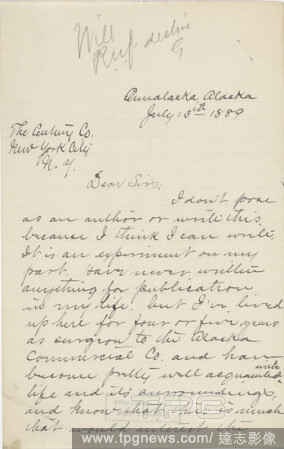 Will
Ruf decline
G
Ounalaska Alaska
July 13th 1889
The Century Co.
New York City
N. Y.
Dear Sirs,
I don't pose
as an author or write this
because I think I can write.
It is an experiment on my
part. Have never written
anything for publication
in my life. but I've lived
up here for four or five years
as surgeon to the Alaska
Commercial Co. and have
become pretty well acquainted
with
life and its surroundings,
and know that is much
that would interest the
www.tpgnews.com / 達志影像